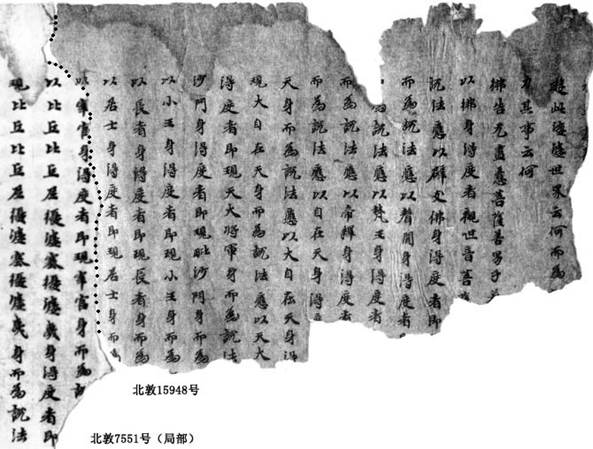 遊此娑婆世界云何而為
力其事云何
佛告无盡意菩薩善男子
以佛身得度者觀世音菩
說法應以辟支佛身得度者即
而為說法應以聲聞身得度者
為說法應以梵王身得度者
而為說法應以帝釋身得度者
而為說法應以自在天身得
天身而為說法應以大自在天身得
現大自在天身而為說法應以天大
得度者即現天大將軍身而為說法
沙門身得度者即現毗沙門身而
以小王身得度者即現小王身而為
以長者身得度者即現長者身而為
以居士身得度者即現居士身而
以宰官身得度者即現宰官身而為說
以比丘比丘尼優婆塞優婆夷身得度者即
現比丘比丘尼優婆塞優婆夷身而為說法
北敦15948号
北敦7551号（局部）